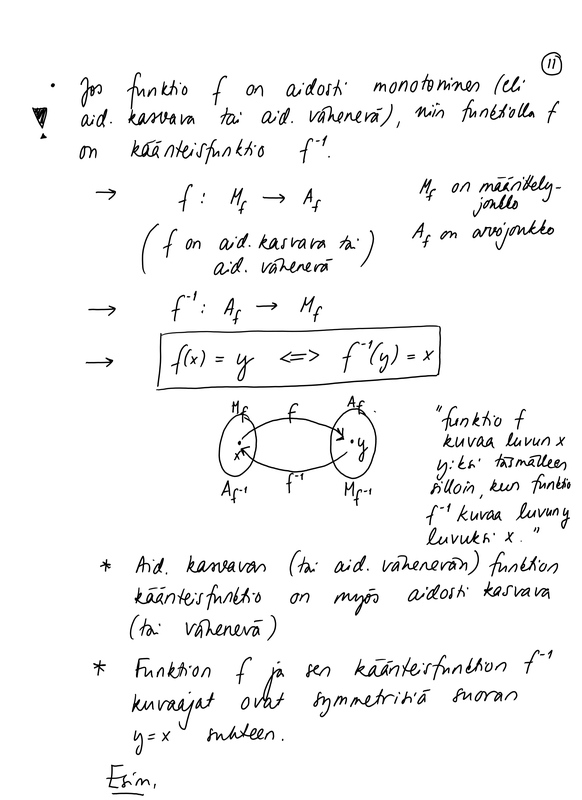 11
• Jos funktio f on aidosti monotoninen (eli
! aid. kasvava tai aid. vähenevä), niin funktiolla f
on käänteisfunktio f⁻¹.
→ f : M_f → A_f
M_f on määrittely-
joukko
(f on aid. kasvava tai
aid. vähenevä)
A_f on arvojoukko
→ f⁻¹ : A_f → M_f
→ f(x) = y <=> f⁻¹(y) = x
M_f f A_f
x y
A_f⁻¹ f⁻¹ M_f⁻¹
"funktio f
kuvaa luvun x
y:ksi täsmälleen
silloin, kun funktio
f⁻¹ kuvaa luvun y
luvuksi x."
* Aid. kasvavan (tai aid. vähenevän) funktion
käänteisfunktio on myös aidosti kasvava
(tai vähenevä)
* Funktion f ja sen käänteisfunktion f⁻¹
kuvaajat ovat symmetrisiä suoran
y=x suhteen.
Esim.